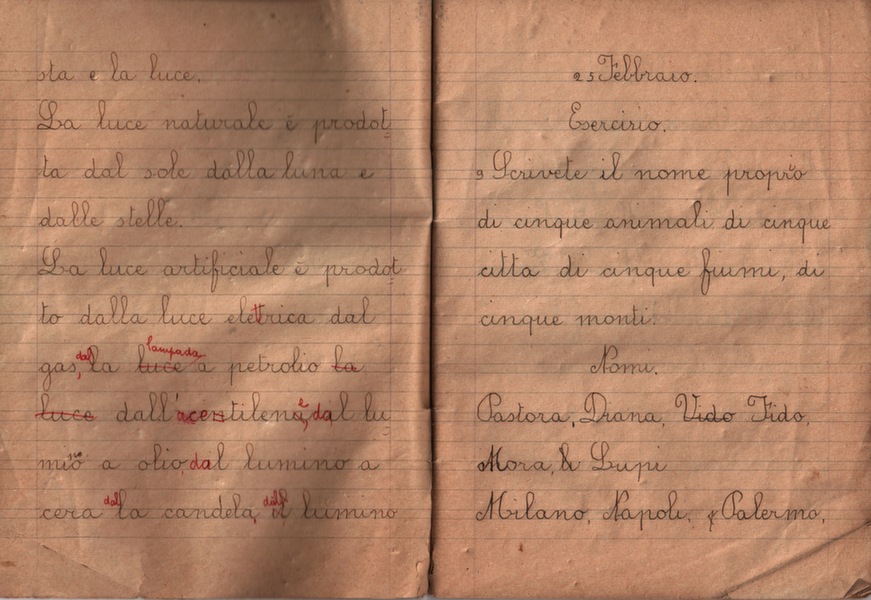 sta e la luce.
La luce naturale è prodot
ta dal sole dalla luna e
dalle stelle.
La luce artificiale è prodot
to dalla luce elettrica dal
gas, dalla luce lampada a petrolio la
luce dall'acentilene, dal lu
mino a olio, dal lumino a
cera dalla candela, dal lumino
25 Febbraio.
Esercizio.
9 Scrivete il nome proprio
di cinque animali di cinque
citta di cinque fiumi, di
cinque monti.
Nomi.
Pastora, Diana, Vido Fido,
Mora, Lupi
Milano, Napoli, Palermo,